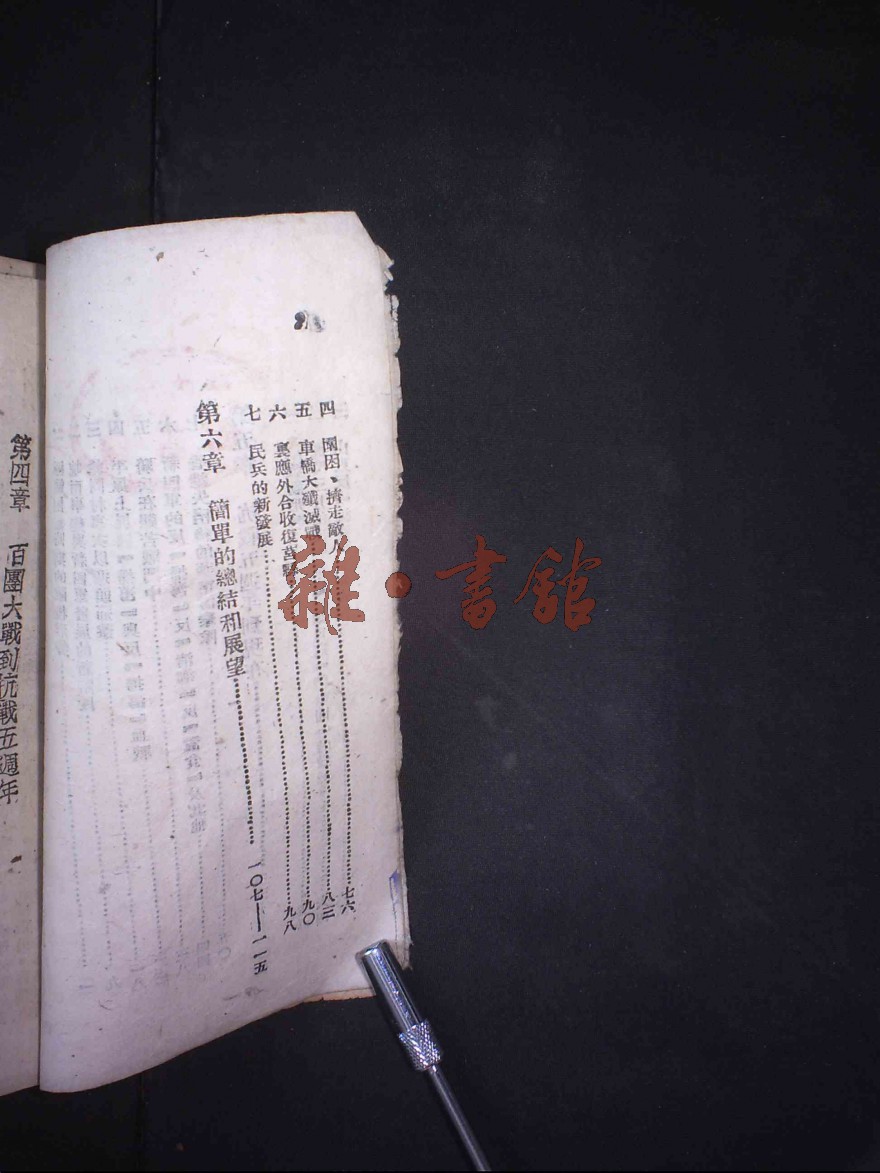 四 圍困、擠走敵人……七六
五 車橋大殲滅戰……八三
六 裏應外合收復……九〇
七 民兵的新發展……九八
第六章 簡單的總結和展望……一〇七——一一五
第四章 百團大戰到抗戰五週年
雜·書館